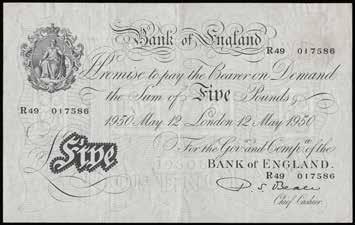 Bank of England
R49 017586
I Promise to pay the Bearer on Demand
the Sum of Five Pounds
R49 017586
1950 May 12 London 12 May 1950
For the Govr. and Compa. of the
BANK of ENGLAND.
R49 017586
Five
P. S. Beale
Chief Cashier.